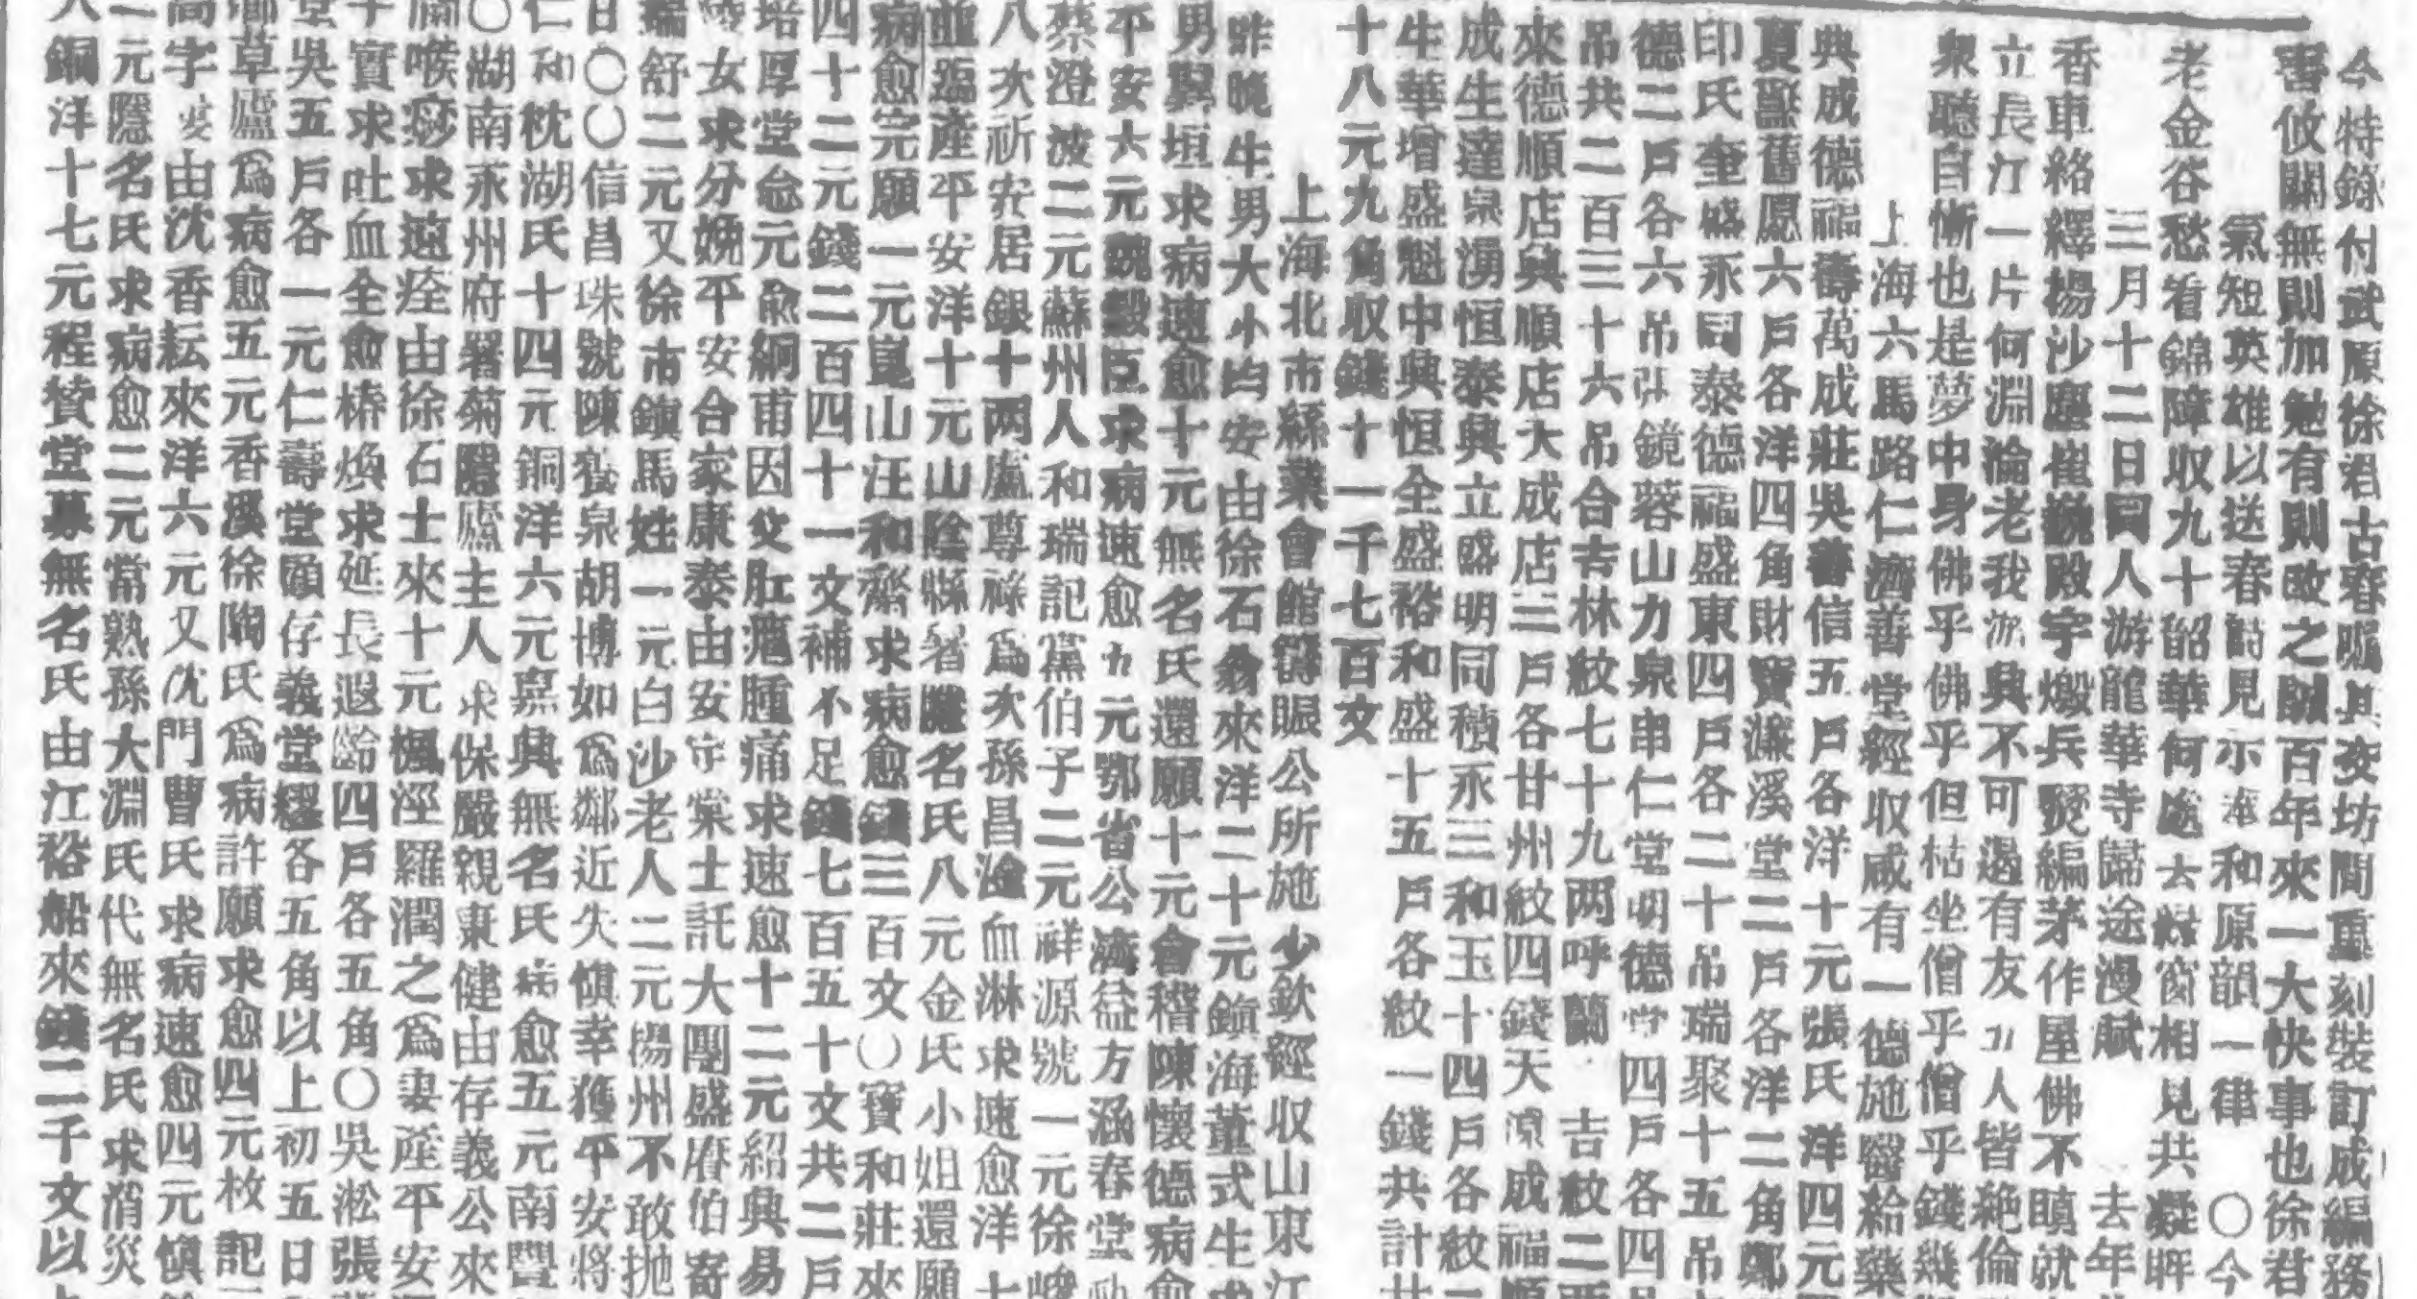 今特錄付武原徐君古春囑其交坊間重刻裝訂成編務
書攸關無則加勉有則改之誠百年來一大快事也徐君
氣短英雄以送春詩見示率和原韻一律　〇今
老金谷愁看錦障收九十韶華何處去紗窗相見共凝眸
三月十二日同人游龍華寺歸途漫賦　去年
香車絡繹揚沙塵崔巍殿宇燬兵燹編茅作屋佛不瞋就
立長江一片何淵淪老我游興不可遏有友九人皆絶倫
衆聽自慚也是夢中身佛乎佛乎但枯坐僧乎僧乎錢幾
上海六馬路仁濟善堂經收咸有一德施醫給藥
典成德福壽萬成莊吳善信五戶各洋十元張氏洋四元
夏聚舊愿六戶各洋四角財寶濂溪堂二戶各洋二角鄭
印氏奎盛永同泰德福盛東四戶各二十吊瑞聚十五吊
德二戶各六吊 鏡蓉山力泉串仁堂明德堂四戶各四吊
吊共二百三十六吊合吉林紋七十九两呼蘭 吉紋二两
來德順店興順店大成店三戶各甘州紋四錢天源成福順
成生達泉湧恒泰興立盛明同積永三和玉十四戶各紋二
生華增盛魁中興恒全盛裕和盛十五戶各紋一錢共計廿
十八元九角收錢十一千七百文
上海北市絲業會館籌賑公所施少欽經收山東江
昨晚生男大小均安由徐石翁來洋二十元鎮海董式生求
男翼垣求病速愈十元無名氏還願十元會稽陳懷德病愈
平安六元魏毅臣求病速愈九元鄂省公濟益方涵春堂
蔡澄波二元蘇州人和瑞記黨伯子二元祥源號一元徐峻
八次祈安居銀十两盧尊祿爲次孫昌淦血淋求速愈洋七
並臨產平安洋十元山陰縣署隱名氏八元金氏小姐還願
病愈完願一元崑山汪和齋求病愈錢三百文〇寶和莊來
四十二元錢二百四十一文補不足錢七百五十文共二戶
培厚堂俞元俞綱甫因父肛癰腫痛求速愈十二元紹興易
女求分娩平安合家康泰由安定棠士託大團盛眉伯寄
瑞舒二元又徐市鎮馬姓一元白沙老人二元揚州不敢拋
日〇〇信昌珠號陳養泉胡博如爲鄰近失愼幸獲平安將
仁和枕湖氏十四元銅洋六元嘉興無名氏病愈五元南豐
〇湖南永州府署菊隱廬主人求保嚴親康健由存義公來
喉痧求速痊由徐石士來十元楓涇羅潤之爲妻產平安
千寳求吐血全愈椿煥求延長遐齡四戶各五角〇吳淞張
堂吳五戶各一元仁壽堂頤存義堂繆各五角以上初五日
草廬爲病愈五元香溪徐陶氏爲病許願求愈四元枚記
高字 由沈香耘來洋六元又沈門曹氏求病速愈四元愼
一元隱名氏求病愈二元常熟孫大淵氏代無名氏求消災
銅洋十七元程贊堂募無名氏由江裕船來錢二千文以上